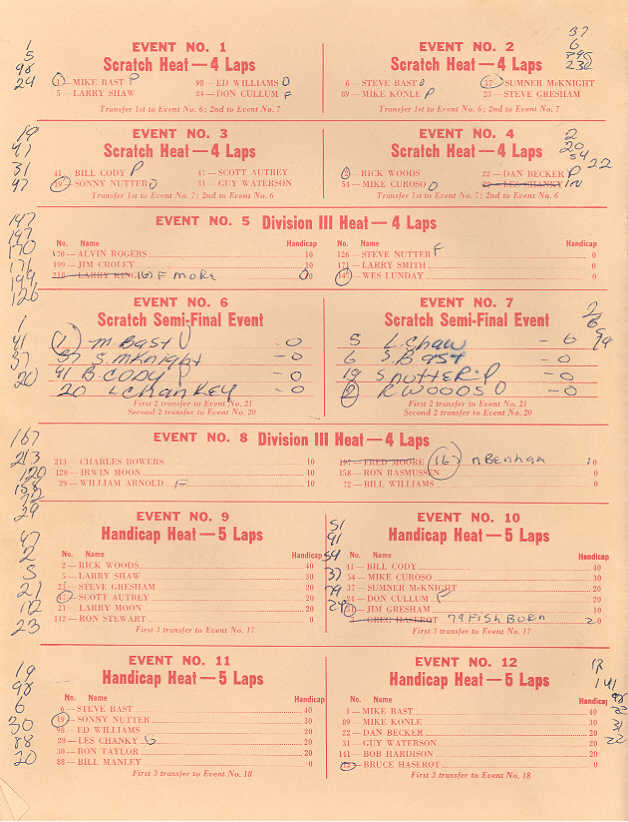 1
5
98
24
EVENT NO. 1
Scratch Heat—4 Laps
1—MIKE BAST P
98—ED WILLIAMS O
5—LARRY SHAW
24—DON CULLUM F
Transfer 1st to Event No. 6; 2nd to Event No. 7
37
6
EVENT NO. 2
Scratch Heat—4 Laps
6—STEVE BAST O
SUMNER McKNIGHT
89—MIKE KONLE P
23—STEVE GRESHAM
Transfer 1st to Event No. 6; 2nd to Event No. 7
19
41
31
47
EVENT NO. 3
Scratch Heat—4 Laps
41—BILL CODY P
47—SCOTT AUTREY
19—SONNY NUTTER O
31—GUY WATERSON
Transfer 1st to Event No. 7; 2nd to Event No. 6
2
20
54
22
EVENT NO. 4
Scratch Heat—4 Laps
2—RICK WOODS
22—DAN BECKER P
54—MIKE CUROSO O
LES CHANKY IN
Transfer 1st to Event No. 7; 2nd to Event No. 6
147
197
170
171
199
126
EVENT NO. 5 Division III Heat—4 Laps
No. Name Handicap
170—ALVIN ROGERS 10
199—JIM CROLEY 10
210—LARRY KING 167 F MORE 0
126—STEVE NUTTER F 0
171—LARRY SMITH 0
147—WES LUNDAY 0
1
41
37
20
EVENT NO. 6
Scratch Semi-Final Event
1 M BAST -0
37 S. McKnight -0
41 B. CODY P -0
20 L CHANKEY -0
First 2 transfer to Event No. 21
Second 2 transfer to Event No. 20
2
6
EVENT NO. 7
Scratch Semi-Final Event
5 L. Shaw -0
6 S. BAST -0
19 S NUTTER P -0
2 R WOODS O -0
First 2 transfer to Event No. 21
Second 2 transfer to Event No. 20
167
213
120
158
72
29
EVENT NO. 8 Division III Heat—4 Laps
213—CHARLES BOWERS 10
120—IRWIN MOON 10
29—WILLIAM ARNOLD F 10
197—FRED MOORE 167 10
158—RON RASMUSSEN 0
72—BILL WILLIAMS 0
47
2
5
21
112
23
EVENT NO. 9
Handicap Heat—5 Laps
No. Name Handicap
2—RICK WOODS 40
5—LARRY SHAW 30
23—STEVE GRESHAM 20
47—SCOTT AUTREY 20
21—LARRY MOON 20
112—RON STEWART 0
First 3 transfer to Event No. 17
51
41
54
37
79
24
EVENT NO. 10
Handicap Heat—5 Laps
No. Name Handicap
41—BILL CODY 40
54—MIKE CUROSO 30
37—SUMNER McKNIGHT 20
24—DON CULLUM F 20
51—JIM GRESHAM 10
GREG HASEROT 79 FISHBURN 20
First 3 transfer to Event No. 17
19
98
6
30
88
20
EVENT NO. 11
Handicap Heat—5 Laps
No. Name Handicap
6—STEVE BAST 40
19—SONNY NUTTER 30
98—ED WILLIAMS 20
20—LES CHANKY 20
30—RON TAYLOR 20
88—BILL MANLEY 0
First 3 transfer to Event No. 18
12
141
98
22
31
22
EVENT NO. 12
Handicap Heat—5 Laps
No. Name Handicap
1—MIKE BAST 40
89—MIKE KONLE 30
22—DAN BECKER 20
31—GUY WATERSON 20
141—BOB HARDISON 20
BRUCE HASEROT 0
First 3 transfer to Event No. 18